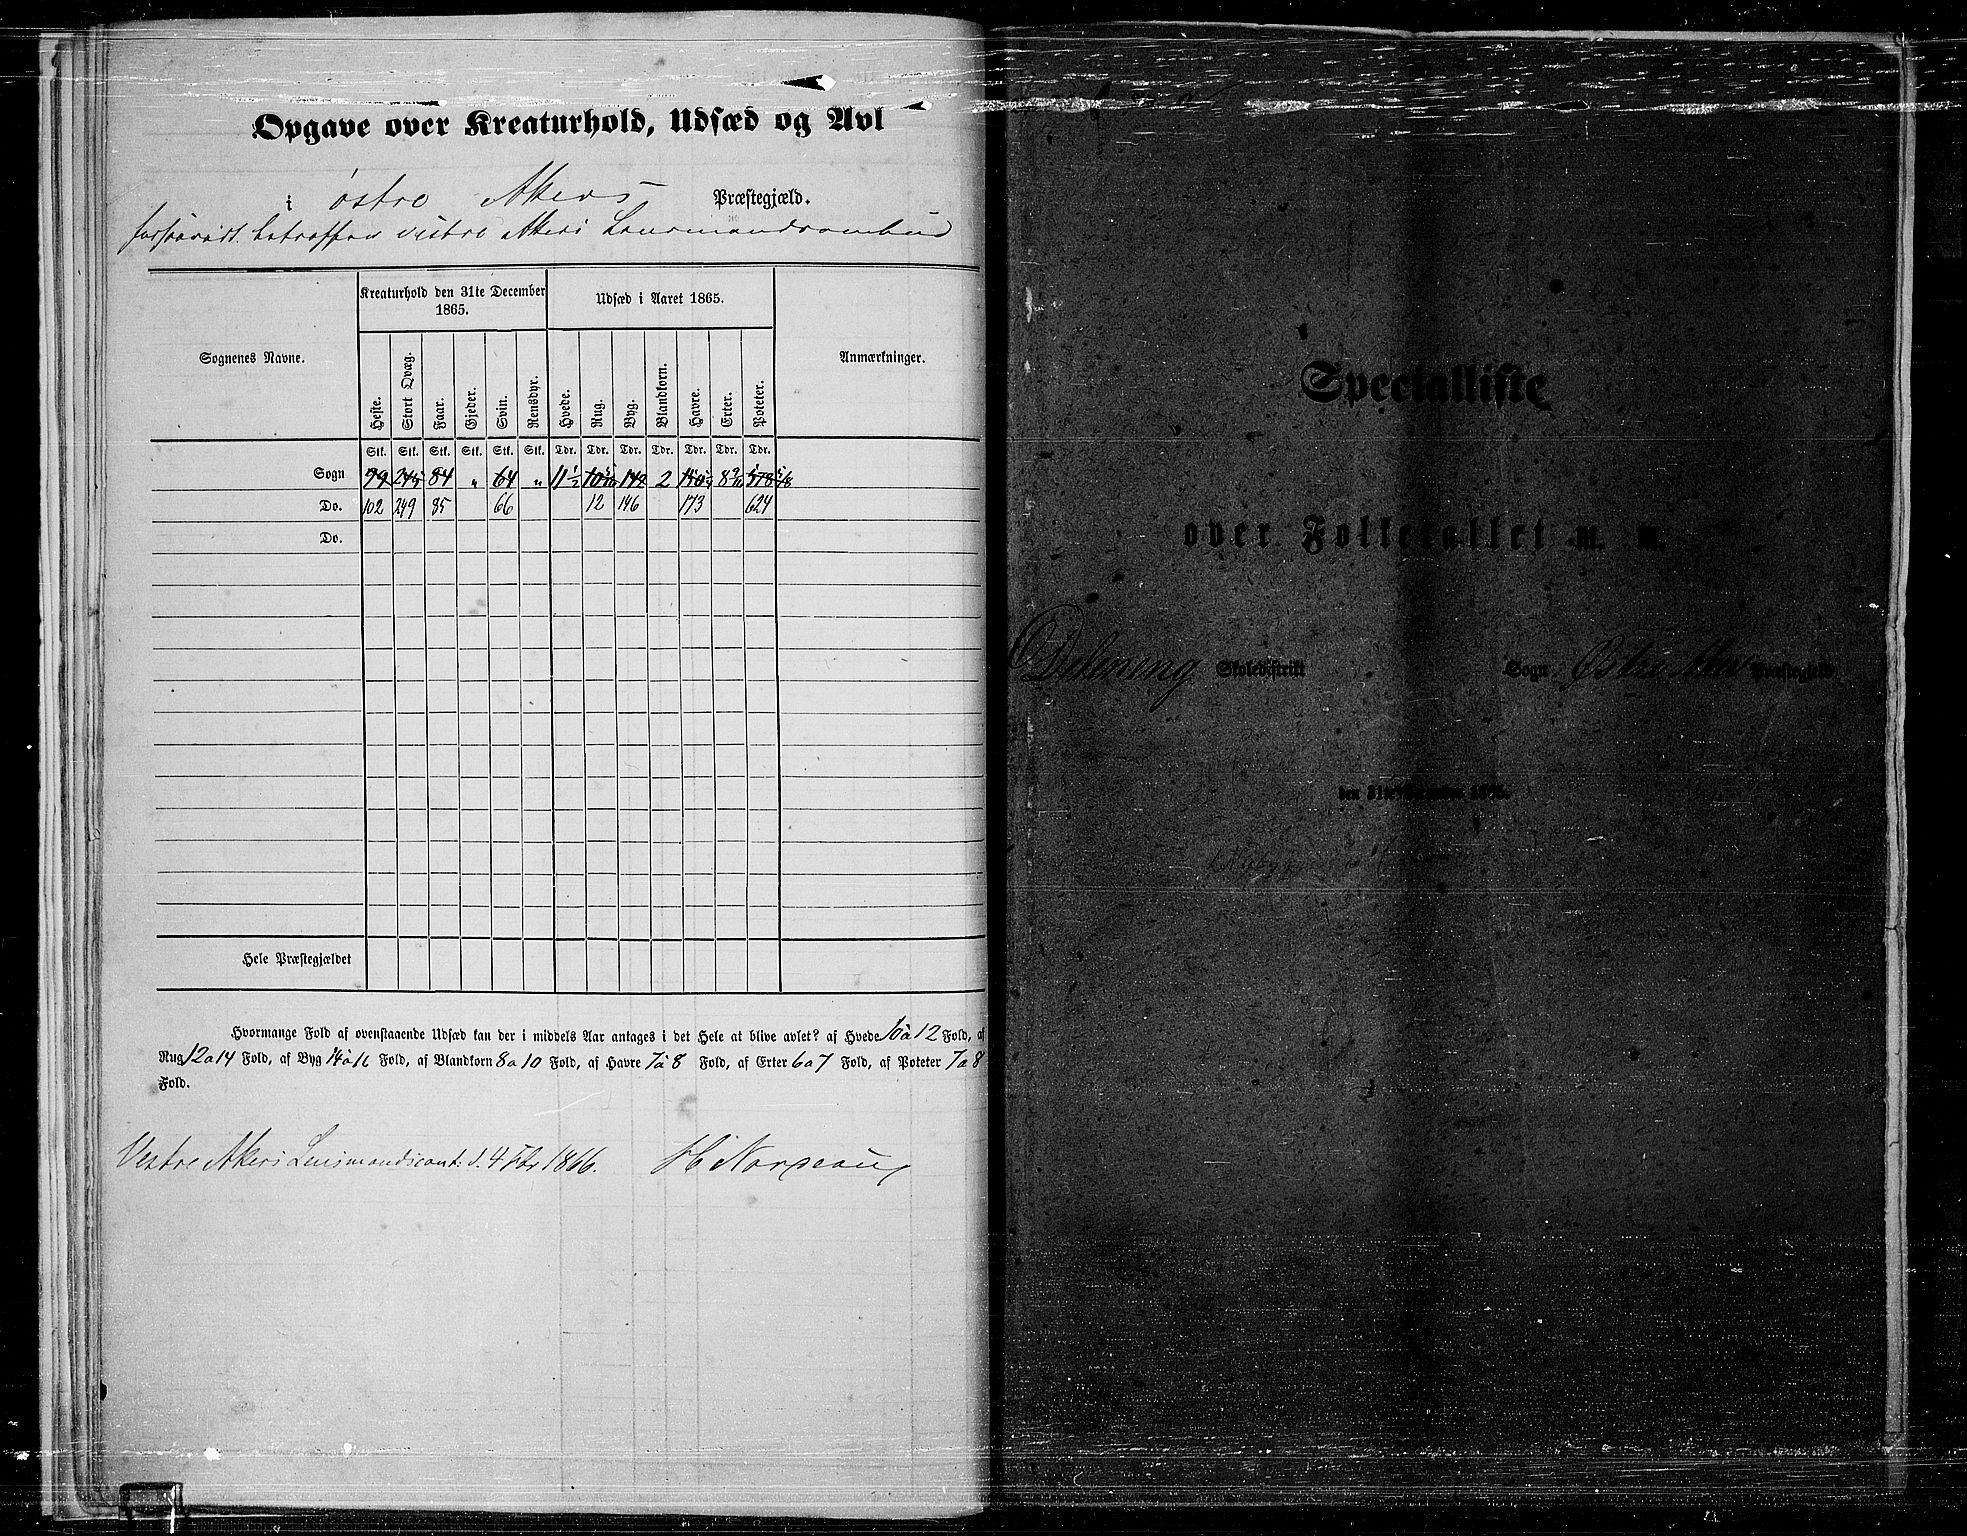 Opgave over Kreaturhold, Udsæd og Avl
i Østre Akers Præstegjæld.
forsaavidt betræffer Vestre Akers Lensmandsombud
Sognenes Navne.
Kreaturhold den 31te December 1865.
Udsæd i Aaret 1865.
Anmærkninger.
Heste. Stort Qvæg. Faar. Gjeder. Svin. Rensdyr. Hvede. Rug. Byg. Blandkorn. Havre. Erter. Poteter.
Stk. Stk. Stk. Stk. Stk. Stk. Tdr. Tdr. Tdr. Tdr. Tdr. Tdr. Tdr.
Sogn 84 " 64 " 11 1/2 2
Do. 102 249 85 66 12 146 173 624
Do.
Hele Præstegjældet
Hvormange Fold af ovenstaaende Udsæd kan der i middels Aar antages i det Hele at blive avlet? af Hvede 10 à 12 Fold, af
Rug 12 a 14 Fold, af Byg 14 à 16 Fold, af Blandkorn 8 a 10 Fold, af Havre 7 à 8 Fold, af Erter 6 a 7 Fold, af Poteter 7 a 8
Fold.
Vestre Akers Lensmandscont. d. 4 Fbr 1866.
Specialliste
over Folketallet m. m.
Skoledistrikt Sogn Østre Aker Præstegjeld
den 31te December 1865.